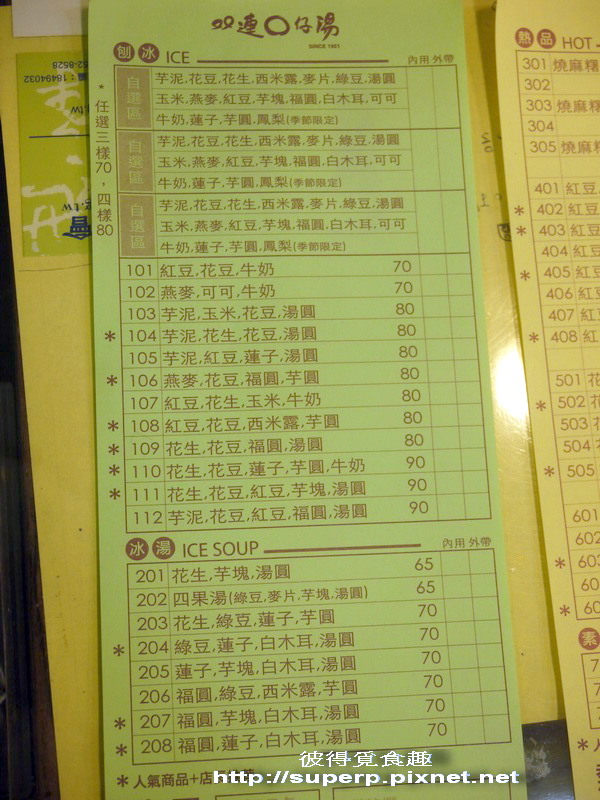 双連〇仔湯
SINCE 1951
刨冰 ICE 內用 外帶
*任選三樣70，四樣80
自選區
芋泥,花豆,花生,西米露,麥片,綠豆,湯圓
玉米,燕麥,紅豆,芋塊,福圓,白木耳,可可
牛奶,蓮子,芋圓,鳳梨(季節限定)
自選區
芋泥,花豆,花生,西米露,麥片,綠豆,湯圓
玉米,燕麥,紅豆,芋塊,福圓,白木耳,可可
牛奶,蓮子,芋圓,鳳梨(季節限定)
自選區
芋泥,花豆,花生,西米露,麥片,綠豆,湯圓
玉米,燕麥,紅豆,芋塊,福圓,白木耳,可可
牛奶,蓮子,芋圓,鳳梨(季節限定)
101 紅豆,花豆,牛奶 70
102 燕麥,可可,牛奶 70
103 芋泥,玉米,花豆,湯圓 80
*104 芋泥,花生,花豆,湯圓 80
105 芋泥,紅豆,蓮子,湯圓 80
*106 燕麥,花豆,福圓,芋圓 80
107 紅豆,花生,玉米,牛奶 80
*108 紅豆,花豆,西米露,芋圓 80
*109 花生,花豆,福圓,湯圓 80
*110 花生,花豆,蓮子,芋圓,牛奶 90
*111 花生,花豆,紅豆,芋塊,湯圓 90
112 芋泥,花豆,紅豆,福圓,湯圓 90
冰湯 ICE SOUP 內用 外帶
201 花生,芋塊,湯圓 65
202 四果湯(綠豆,麥片,芋塊,湯圓) 65
203 花生,綠豆,蓮子,芋圓 70
*204 綠豆,蓮子,白木耳,湯圓 70
205 蓮子,芋塊,白木耳,湯圓 70
206 福圓,綠豆,西米露,芋圓 70
*207 福圓,芋塊,白木耳,湯圓 70
*208 福圓,蓮子,白木耳,湯圓 70
*人氣商品+店
熱品 HOT
301 燒麻糬
302
303 燒麻糬
304
305 燒麻糬
401 紅豆
*402 紅豆
*403 紅豆
404 紅豆
*405 紅豆
406 紅豆
407 紅豆
*408 紅豆
501 花
*502 花
503 花
504 花
*505
601
*602
*603
*60
素
52-8528
編：18494032
彼得覓食趣
http://superp.pixnet.net